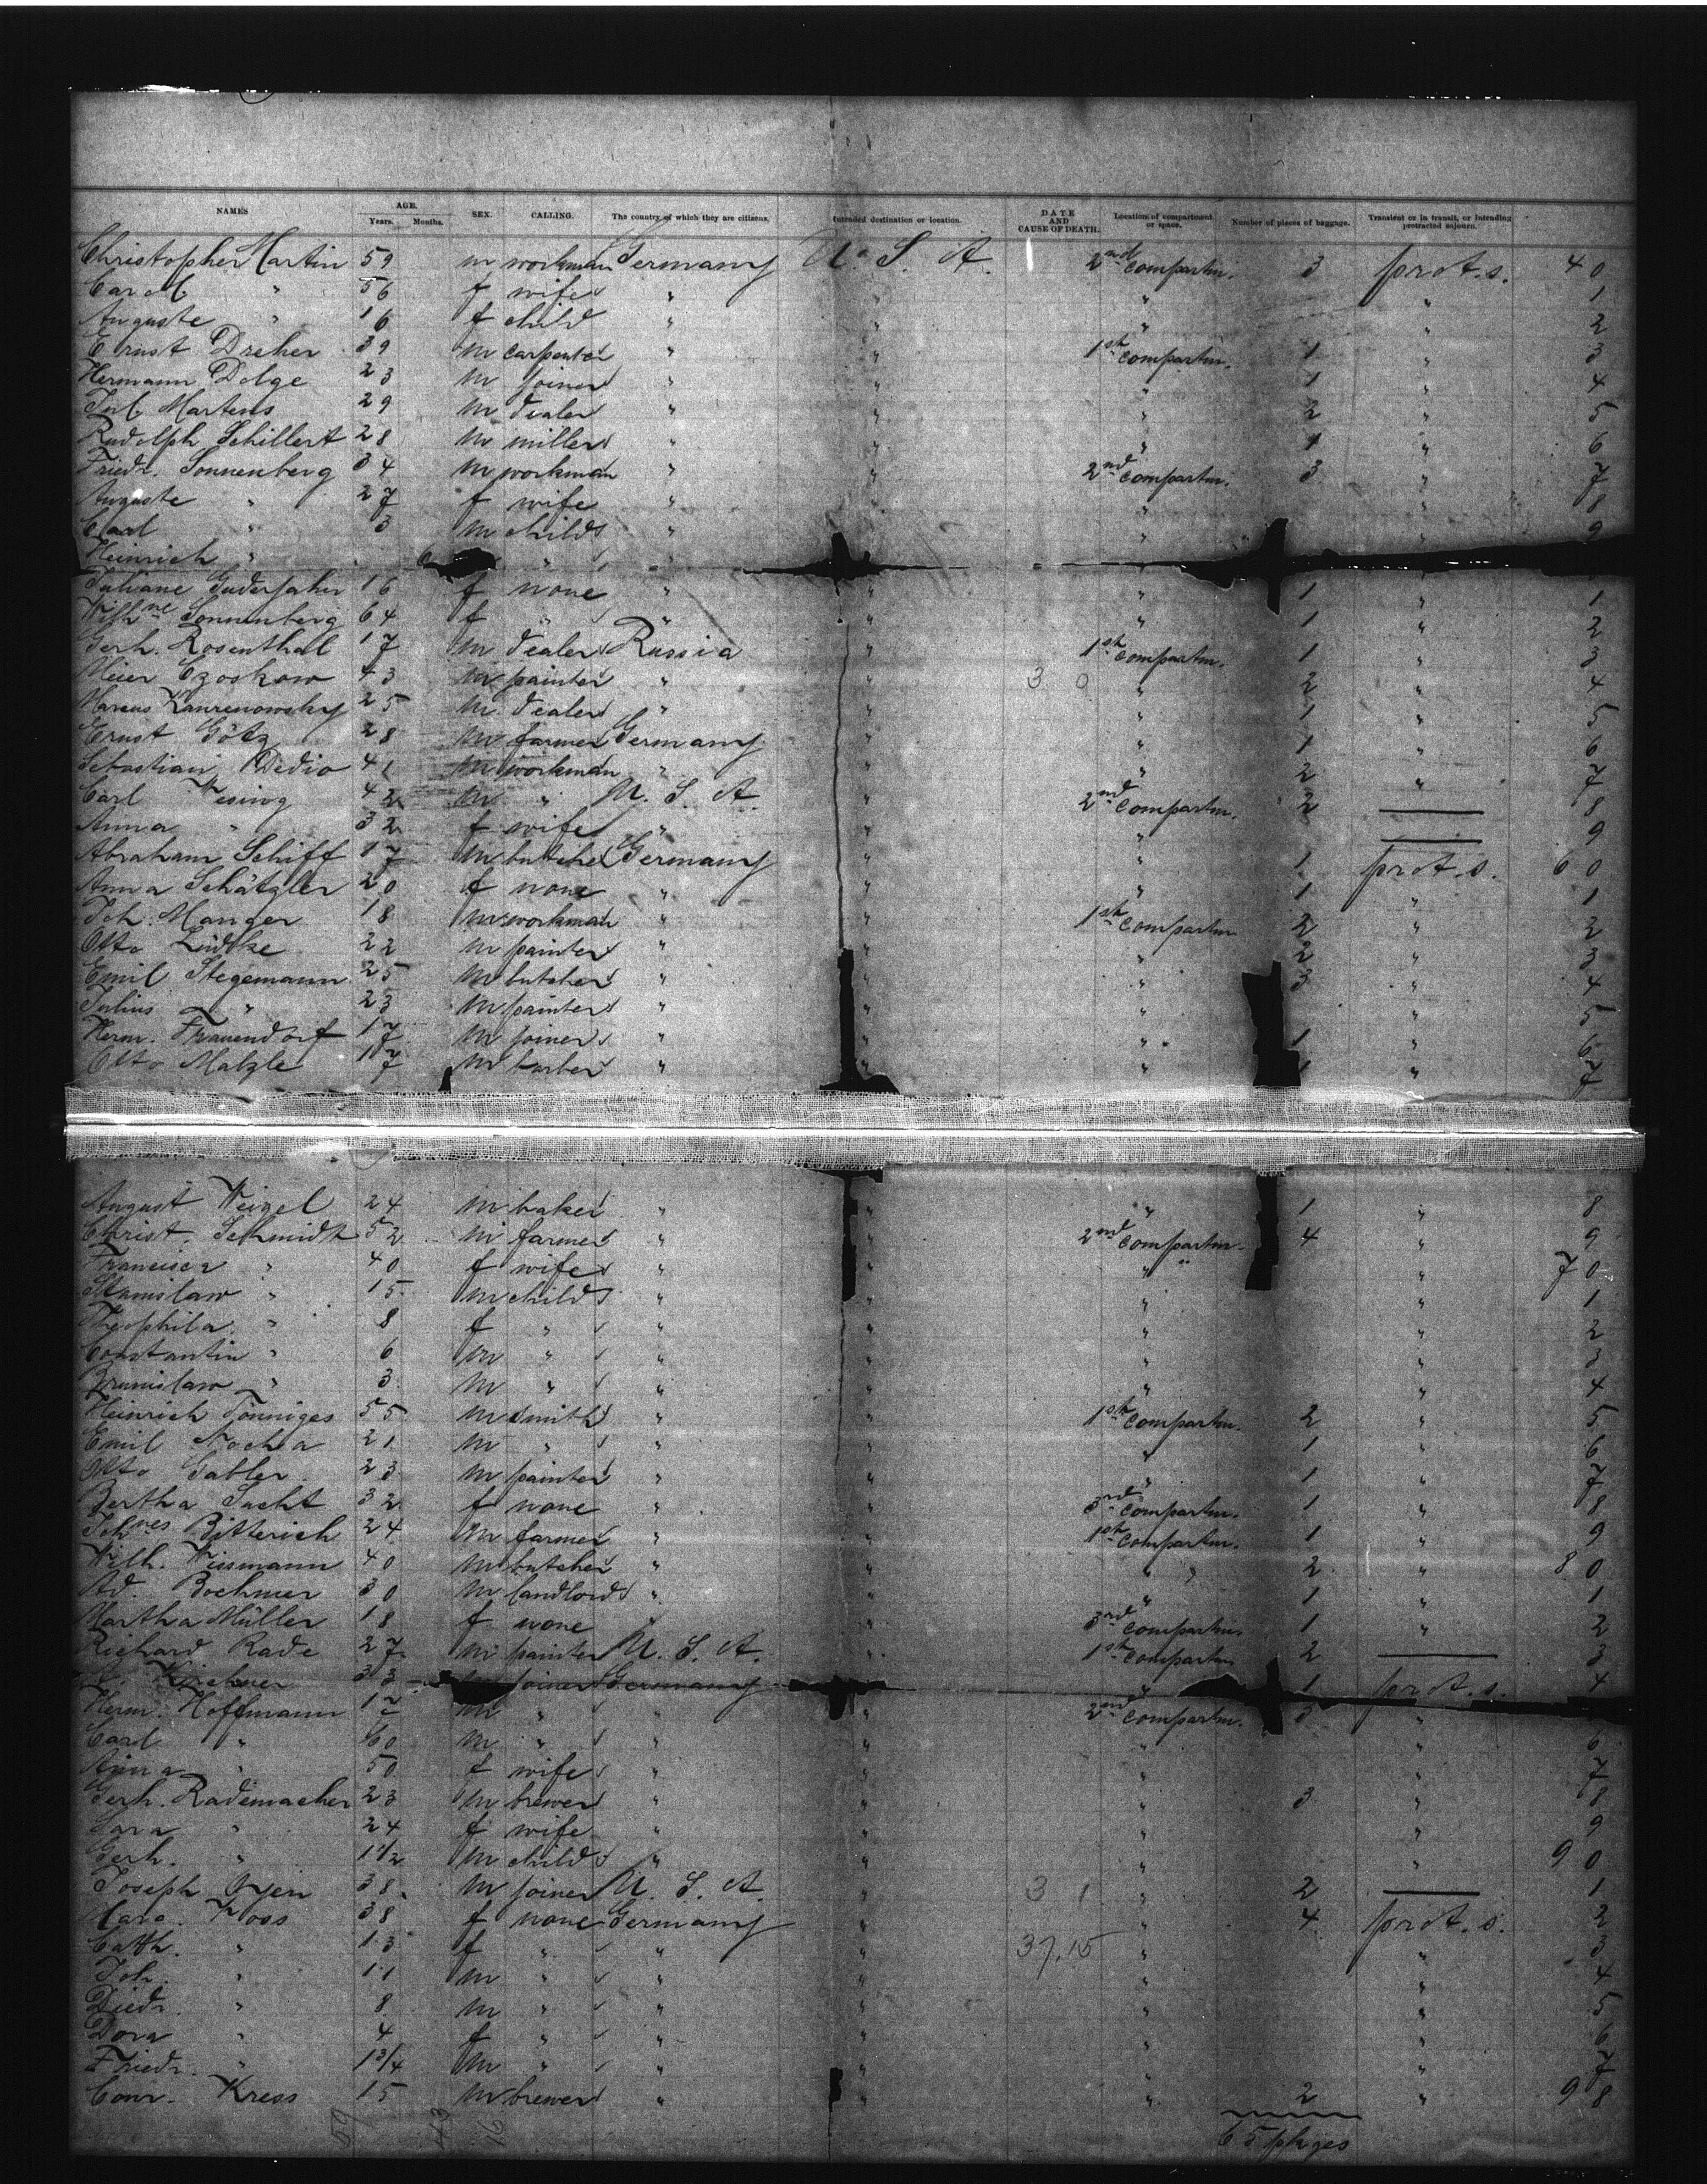 NAMES AGE. Years. Months. SEX. CALLING. The country of which they are citizens. Intended destination or location. DATE AND CAUSE OF DEATH. Location of compartment or space. Number of pieces of baggage. Transient or in transit, or intending protracted sojourn.
Christopher Martin 59 m workman Germany U. S. A. 2nd compartm. 3 prot. s. 40
Carol. " 56 f wife " " " " 1
Auguste " 16 f child " " " " 2
Ernst Dreher 39 m carpenter " " 1st compartm. 1 " 3
Hermann Dolge 23 m joiner " " " 1 " 4
Jul. Martens 29 m dealer " " " 2 " 5
Rudolph Schillert 28 m miller " " " 1 " 6
Friedr. Sonnenberg 34 m workman " " 2nd compartm. 3 " 7
Auguste " 27 f wife " " " " 8
Carl " 3 m child " " " " 9
Heinrich " " "
Juliane Guderjahn 16 f none " " " 1 " 1
Wilhne Sonnenberg 64 f " " " " 1 " 2
Gerh. Rosenthal 17 m dealer Russia " 1st compartm. 1 " 3
Meier Czoskow 43 m painter " " 30 " 2 " 4
Marcus 25 m dealer " " " 1 " 5
Ernst Götz 28 m farmer Germany " " 1 " 6
Sebastian Dedio 41 m workman " " " 2 " 7
Carl 42 m " U. S. A. " 2nd compartm. 2 — 8
Anna " 32 f wife " " " — 9
Abraham Schiff 17 m butcher Germany " " 1 prot. s. 60
Anna Schätzler 20 f none " " " 1 " 1
Joh. Manger 18 m workman " " 1st compartm 2 " 2
Otto Lüdtke 22 m painter " " " 2 " 3
Emil Stegemann 25 m butcher " " " 3 " 4
Julius " 23 m painter " " " " 5
Herm. Frauendorf 17 m joiner " " " 1 " 6
Otto Malzle 17 m barber " " " 1 " 7
August Weigel 24 m baker " " " 1 " 8
Christ. Schmidt 52 m farmer " " 2nd compartm. 4 " 9
Francisca " 40 f wife " " " " 70
Stanislaw " 15 m child " " " " 1
Theophila " 8 f " " " " " 2
Constantin " 6 m " " " " " 3
Bronislaw " 3 m " " " " " 4
Heinrich Tönniges 55 m smith " " 1st compartm. 2 " 5
Emil Nocha 21 m " " " " 1 " 6
Otto Gabler 23 m painter " " " 1 " 7
Bertha Sacht 32 f none " " 3rd compartm. 1 " 8
Johnes Bitterich 24 m farmer " " 1st compartm. 1 " 9
Wilh. Wissmann 40 m butcher " " " 2 " 80
Ad. Boehmer 30 m landlord " " " 1 " 1
Martha Müller 18 f none " " 3rd compartm. 1 " 2
Richard Rade 27 m painter U. S. A. " 1st compartm 2 — 3
Kirchner 33 joiner Germany " " 1 prot. s. 4
Herm. Hoffmann 17 m " " " 2nd compartm. 5 "
Carl " 60 m " " " " " 6
Anna " 50 f wife " " " " 7
Gerh. Rademacher 23 m brewer " " " 3 " 8
Sara " 24 f wife " " " " 9
Gerh. " 1½ m child " " " " 90
Joseph Oyen 38 m joiner U. S. A. " 31 " 2 — 1
Marg. Kooss 38 f none Germany " " 4 prot. s. 2
Cath. " 13 f " " " 37.15 " " 3
Joh. " 11 m " " " " " 4
Diedr. " 8 m " " " " " 5
Dora " 4 f " " " " " 6
Friedr. " 1¾ m " " " " " 7
Conr. Kress 15 m brewer " " " 2 " 98
59 43 16 65 pkges